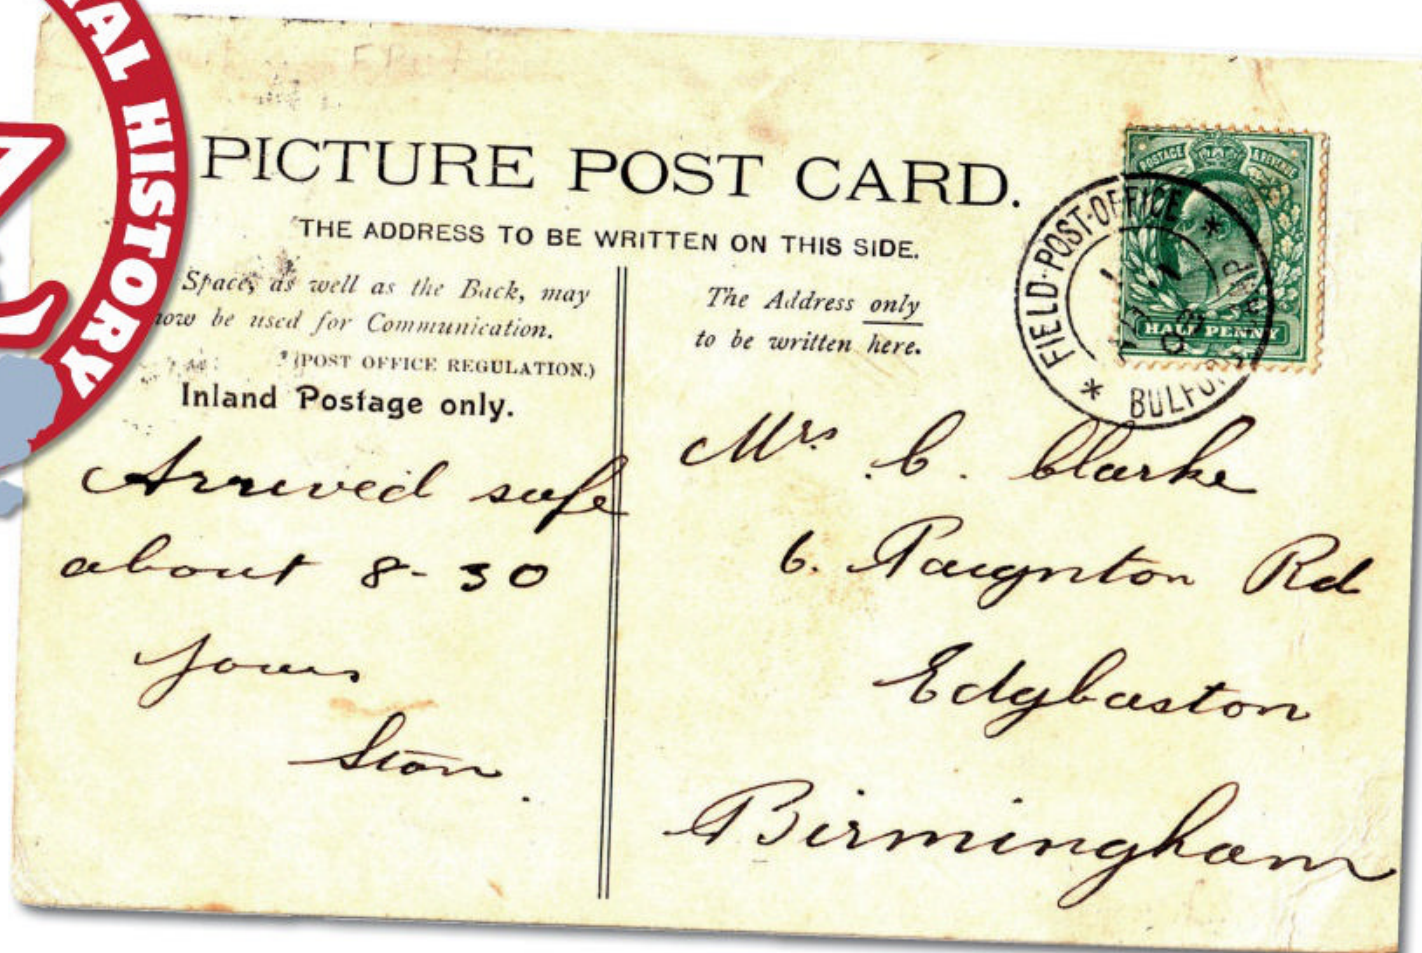 HISTORY
PICTURE POST CARD.
THE ADDRESS TO BE WRITTEN ON THIS SIDE.
Space, as well as the Back, may
now be used for Communication.
(POST OFFICE REGULATION.)
Inland Postage only.
The Address only
to be written here.
POSTAGE & REVENUE
HALFPENNY
FIELD-POST-OFFICE
Arrived safe
about 8-30
Yours
Stan.
Mrs C. Clarke
6. Paignton Rd
Edgbaston
Birmingham